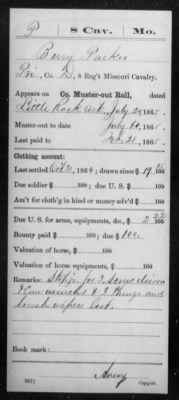 P | 8 Cav. | Mo.
Berry Parker
Pvt., Co. D, 8 Reg't Missouri Cavalry.
Appears on Co. Muster-out Roll, dated
Little Rock Ark, July 20, 1865.
Muster-out to date July 20, 1865.
Last paid to Dec. 31, 1864.
Clothing account:
Last settled Oct 31, 1864; drawn since $ 19 25/100
Due soldier $ /100; due U. S. $ /100
Am't for cloth'g in kind or money adv'd $ /100
Due U. S. for arms, equipments, &c., $ 2 22/100
Bounty paid $ /100; due $ 100 /100
Valuation of horse, $ /100
Valuation of horse equipments, $ /100
Remarks: Stop'g for 2 Screw drivers
& Cone wrenches & 2 thongs and
brush wipers lost.
Book mark:
(361)
Avery
Copyist.